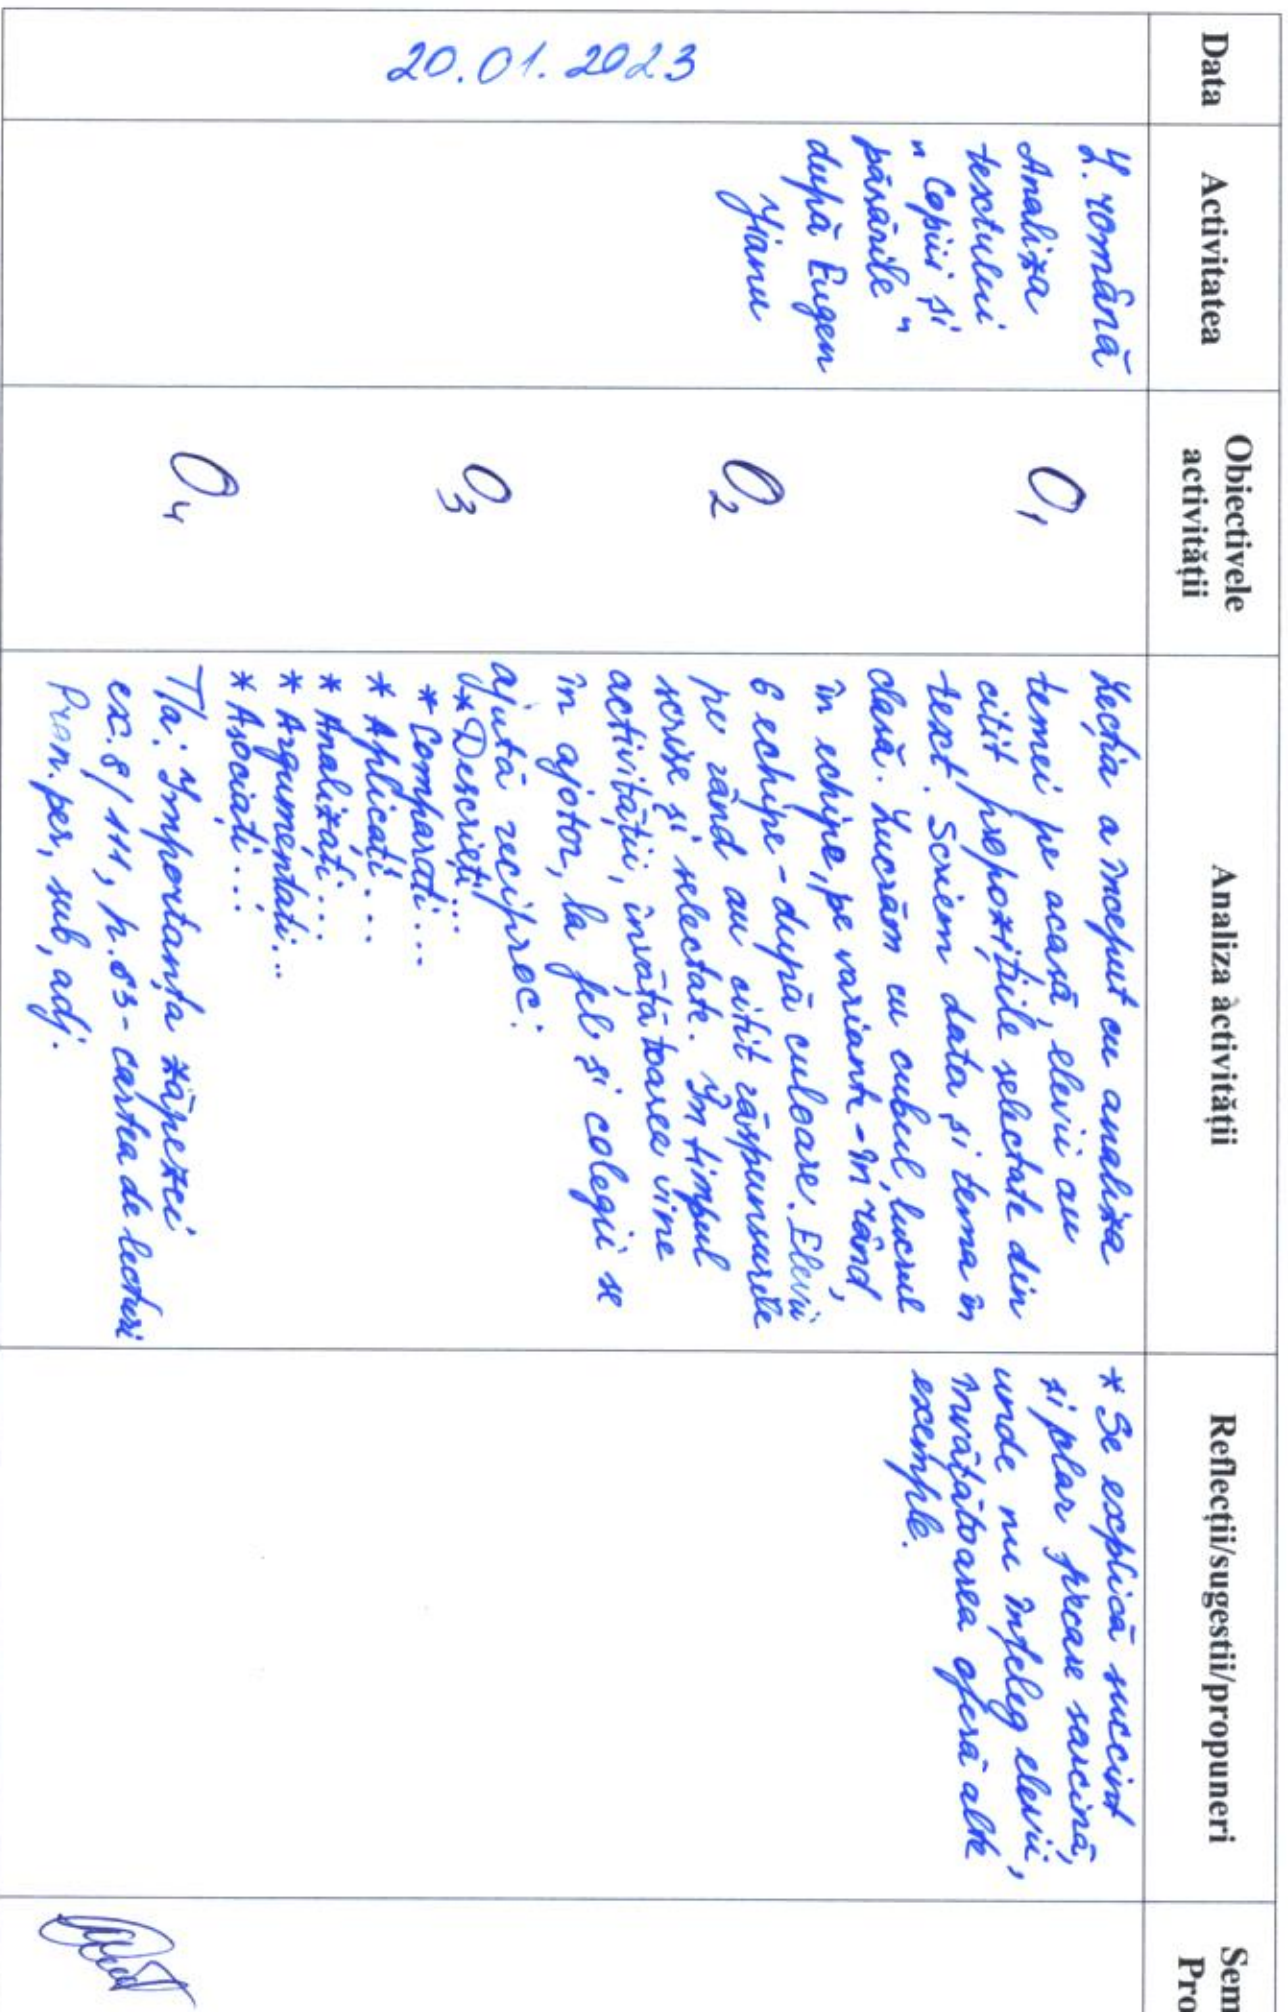 Data
Activitatea
Obiectivele
activității
Analiza activității
Reflecții/sugestii/propuneri
Sem
Pro
20.01.2023
L. română
Analiza
textului
"Copiii și
păsările"
după Eugen
Jianu
O1
O2
O3
O4
Lecția a început cu analiza
temei pe acasă, elevii au
citit propozițiile selectate din
text. Scriem data și tema în
clasă. Lucrăm cu cubul, lucrul
în echipe, pe variante - în rând,
6 echipe - după culoare. Elevii
pe rând au citit răspunsurile
scrise și selectate. În timpul
activității, învățătoarea vine
în ajotor, la fel și colegii se
ajută reciproc:
* Descrieți...
* Comparați...
* Aplicați...
* Analizați...
* Argumentați...
* Asociați...
T/a: Importanța zăpezei
ex. 8/111, p. 83 - cartea de lecturi
Pron. per, sub, adj.
* Se explică succint
și plar fiecare sarcină,
unde nu înțeleg elevii,
învățătoarea oferă alte
exemple.